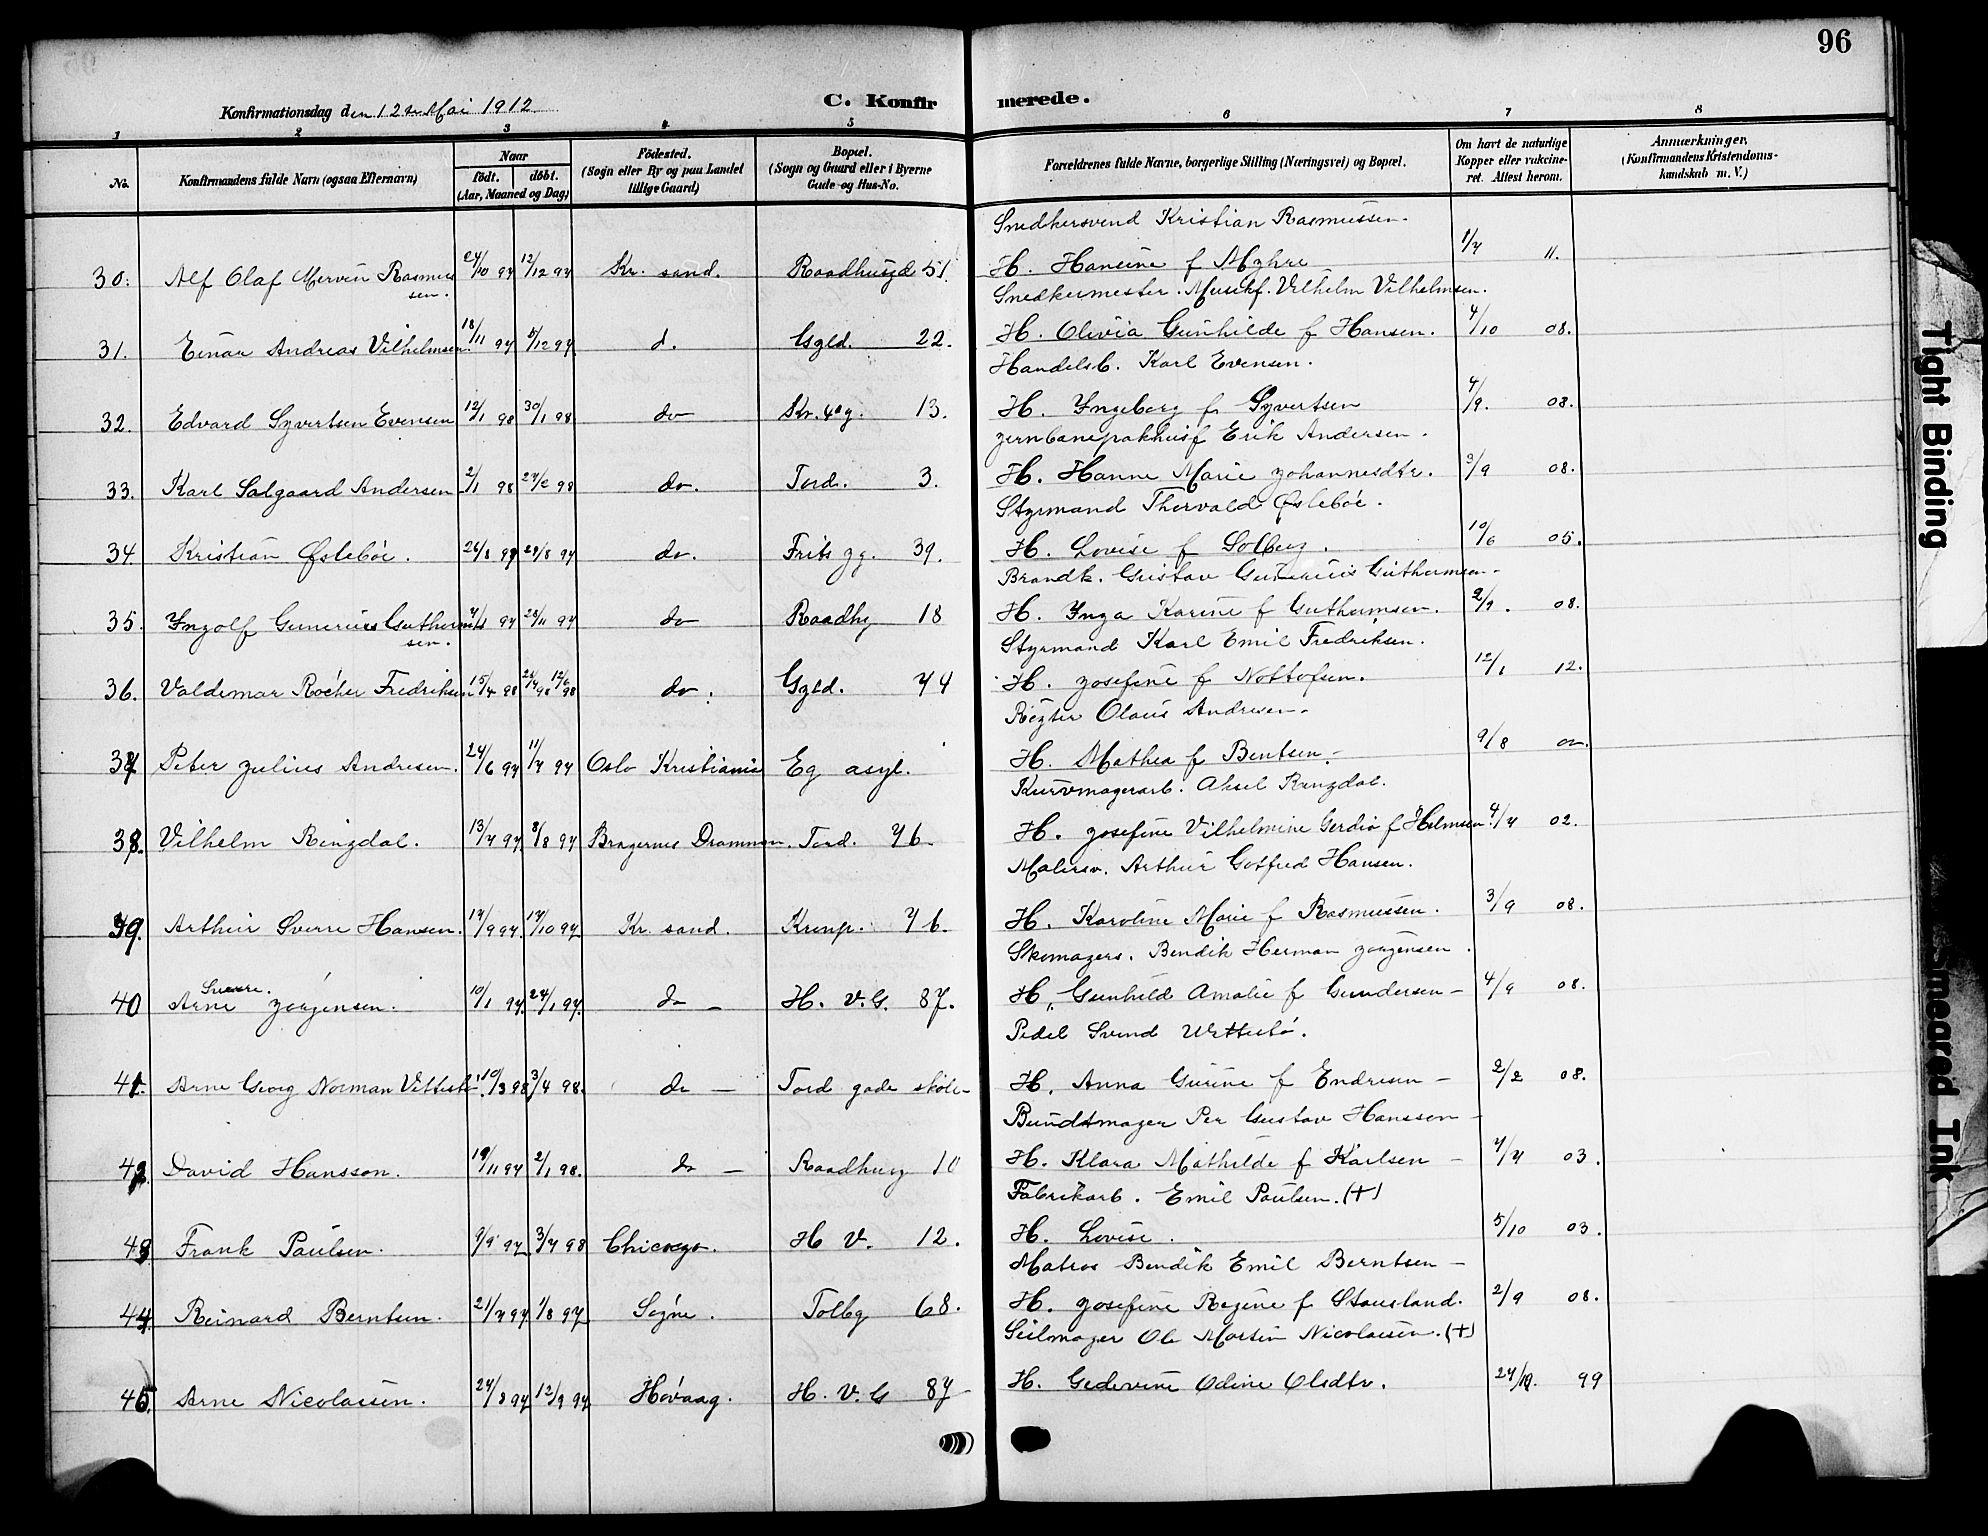 96
Konfirmationsdag den 12te Mai 1912
C. Konfirmerede.
1 2 3 4 5 6 7 8
No. Konfirmandens fulde Navn (ogsaa Efternavn) Naar født. døbt. (Aar, Maaned og Dag) Fødested. (Sogn eller By og paa Landet tillige Gaard) Bopæl. (Sogn og Gaard eller i Byerne Gade- og Hus-No. Forældrenes fulde Navne, borgerlige Stilling (Næringsvei) og Bopæl. Om havt de naturlige Kopper eller vakcineret. Attest herom. Anmærkninger. (Konfirmandens Kristendomskundskab m. V.)
Snedkersvend Kristian Rasmussen.
30. Alf Olaf Mervin Rasmussen. 24/10 97 12/12 97 Kr. sand. Raadhusgd 51. H. Hansine f Myhre 1/7 11.
Snedkermester. Musikf. Vilhelm Vilhelmsen.
31. Einar Andreas Vilhelmsen. 18/11 97 5/12 97 d. Ggld. 22. H. Olivia Gunhilde f Hansen. 4/10 08.
Handelsb. Karl Evensen.
32. Edvard Syvertsen Evensen 12/1 98 30/1 98 do 13. H. Ingeborg f Syvertsen 4/9. 08.
Jernbanepakhusf Erik Andersen.
33. Karl Salgaard Andersen 2/1 98 27/2 98 do. Tord. 3. H. Hanne Marie Johannesdtr. 3/9 08.
Styrmand Thorvald Øslebøe.
34. Kristian Øslebøe. 26/8 97 29/8 97 do. Frits gg. 39. H. Lovise f Solberg. 10/6 05.
Brandk. Gustav Gunerius Guthormsen.
35. Ingolf Gunerius Guthormsen. 97 28/11 97 do Raadhg 18 H. Inga Karine f Guthormsen. 2/9. 08.
Styrmand Karl Emil Fredriksen.
36. Valdemar Røcher Fredriksen 15/4 98 98 12/6 98 do. Ggld. 74 H. Josefine f Nottofsen. 12/1 12.
Olaus Andresen.
37 Peter Julius Andresen. 27/6 97 11/7 97 Oslo Kristiania Eg asyl. H. Mathea f Bentsen. 9/8
Kurvmagerarb. Aksel Ringdal.
38. Vilhelm Ringdal. 13/7 97. 8/8 97 Bragernes Drammen. Tord. 76. H. Josefine Vilhelmine Gerdia f Holmsen. 4/7 02.
Malersv. Arthur Gotfred Hansen.
39. Arthur Sverre Hansen. 17/9 97. 17/10 97. Kr. sand. Kronp. 76. H. Karoline Marie f Rasmussen. 3/9 08.
Skomagers. Bendik Herman Jørgensen.
40 Arne Sverre. Jørgensen. 10/1 97. 27/1 97. do – H. V. G. 87. H. Gunhild Amalie f Gundersen – 4/9 08.
Pedel Svend Wettestø.
41. Arne Georg Norman Vettestø. 10/3 98 3/4 98. do – Tord gade skole H. Anna Gurine f Endresen – 2/2 08.
Bundtmager Per Gustav Hansson –
42. David Hansson. 19/11 97 2/1 98. do – Raadhusg 10 H. Klara Mathilde f Karlsen – 7/7 03.
Fabrikarb. Emil Paulsen. (+)
43 Frank Paulsen. 9/9 97 3/7 98 Chicago. H V. 12. H. Lovise. 5/10 03.
Matros Bendik Emil Berntsen –
44. Reinard Berntsen. 21/7 97 1/8 97. Søgne. Tolbg 68. H. Josefine Regine f Stausland. 2/9 08.
Seilmager Ole Martin Nicolaisen. (+)
45. Arne Nicolaisen. 27/8 97. 12/9 97 Høvaag. H. V. G 87 – H. Gedevine Odine Olsdtr. 99
Tight Binding
Smeared Ink